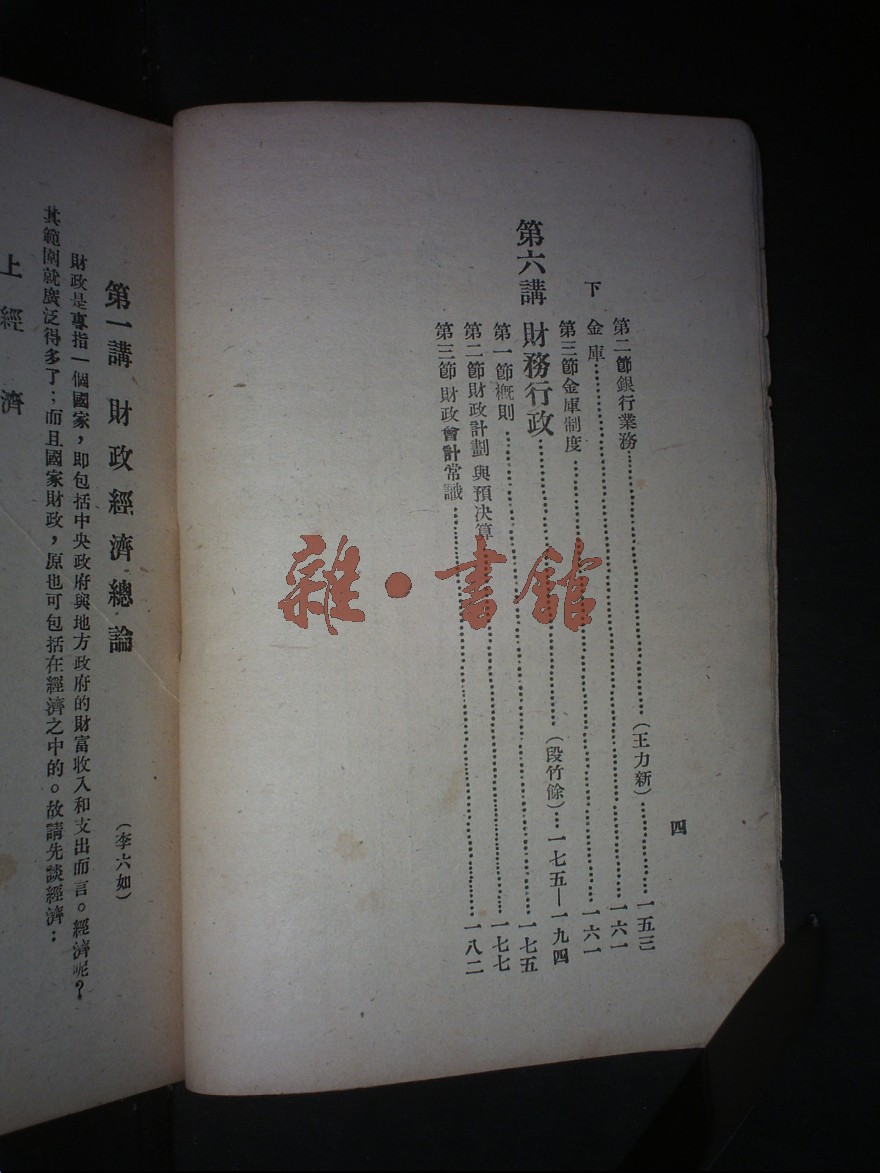 四
第二節銀行業務……(王力新)……一五三
下 金庫……一六一
第三節金庫制度……一六一
第六講 財務行政……(段竹餘)…一七五—一九四
第一節概則……一七五
第二節財政計劃與預決算……一七七
第三節財政會計常識……一八二
第一講 財政經濟總論
(李六如)
財政是專指一個國家，即包括中央政府與地方政府的財富收入和支出而言。經濟呢？
其範圍就廣泛得多了；而且國家財政，原也可包括在經濟之中的。故請先談經濟：
上 經濟
雜·書館